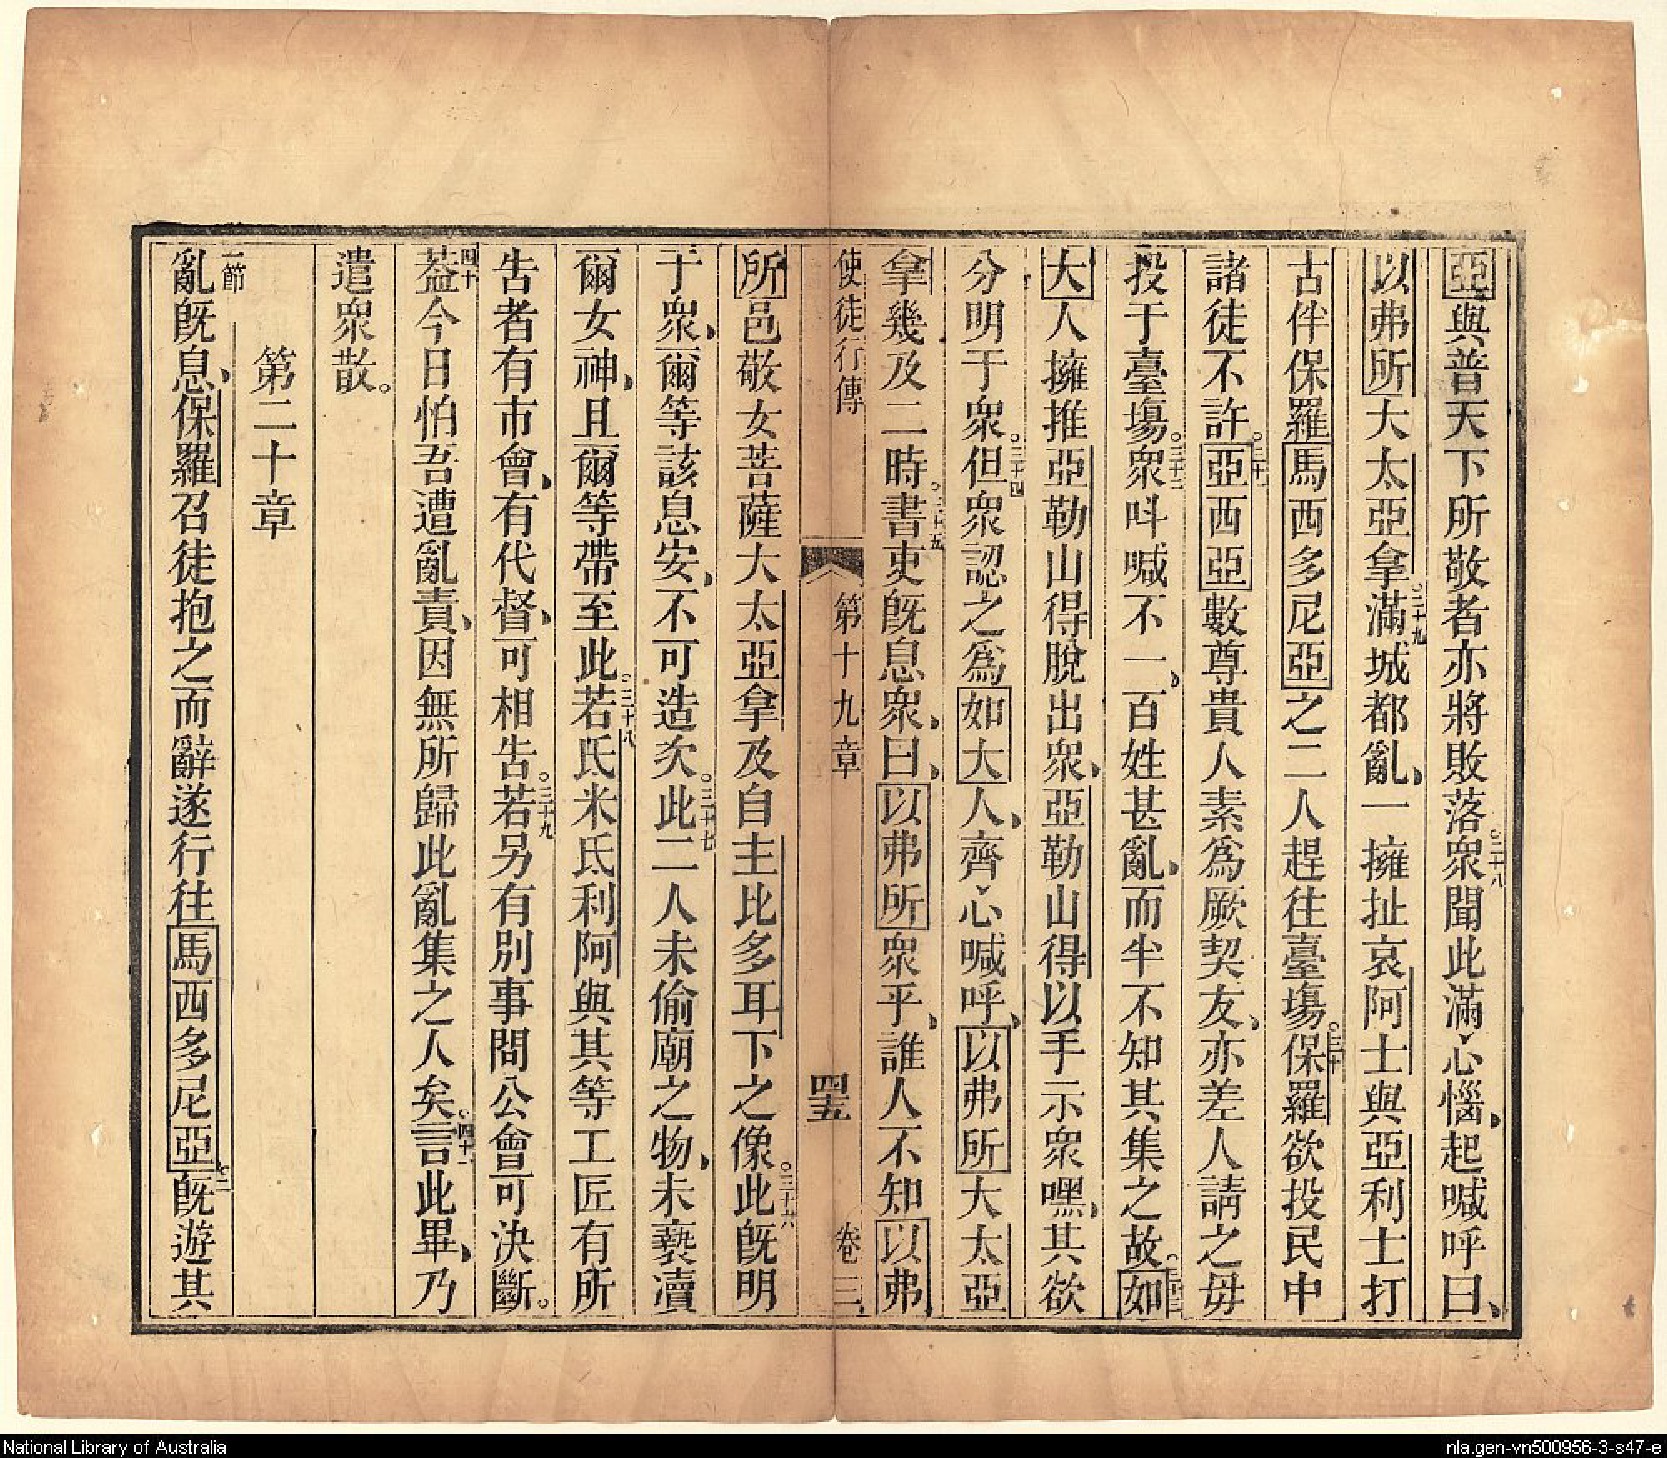 亞與普天下所敬者亦將敗落。二十八衆聞此滿心惱、起喊呼曰、
以弗所大太亞拿。二十九滿城都亂、一擁扯哀阿士與亞利士打
古伴保羅馬西多尼亞之二人趕往臺塲。三十保羅欲投民中
諸徒不許。三十一亞西亞數尊貴人素爲厥契友、亦差人請之毋
投于臺塲。三十二衆呌喊不一、百姓甚亂、而半不知其集之故。三十三如
大人擁推亞勒山得脫出衆、亞勒山得以手示衆嘿、其欲
分明于衆。三十四但衆認之爲如大人、齊心喊呼、以弗所大太亞
拿幾及二時。三十五書吏旣息衆、曰、以弗所衆乎、誰人不知以弗
使徒行傳 第十九章 四五 卷三
所邑敬女菩薩大太亞拿及自主比多耳下之像。三十六此旣明
于衆、爾等該息安、不可造次。三十七此二人未偷廟之物、未褻瀆
爾女神、且爾等帶至此。三十八若氐米氐利阿與其等工匠有所
告者有市會、有代督、可相告。三十九若另有別事問公會可決斷。
四十葢今日怕吾遭亂責、因無所歸此亂集之人矣。四十一言此畢、乃
遣衆散。
第二十章
一節亂旣息、保羅召徒抱之而辭遂行往馬西多尼亞。二旣遊其
National Library of Australia
nla.gen-vn500956-3-s47-e